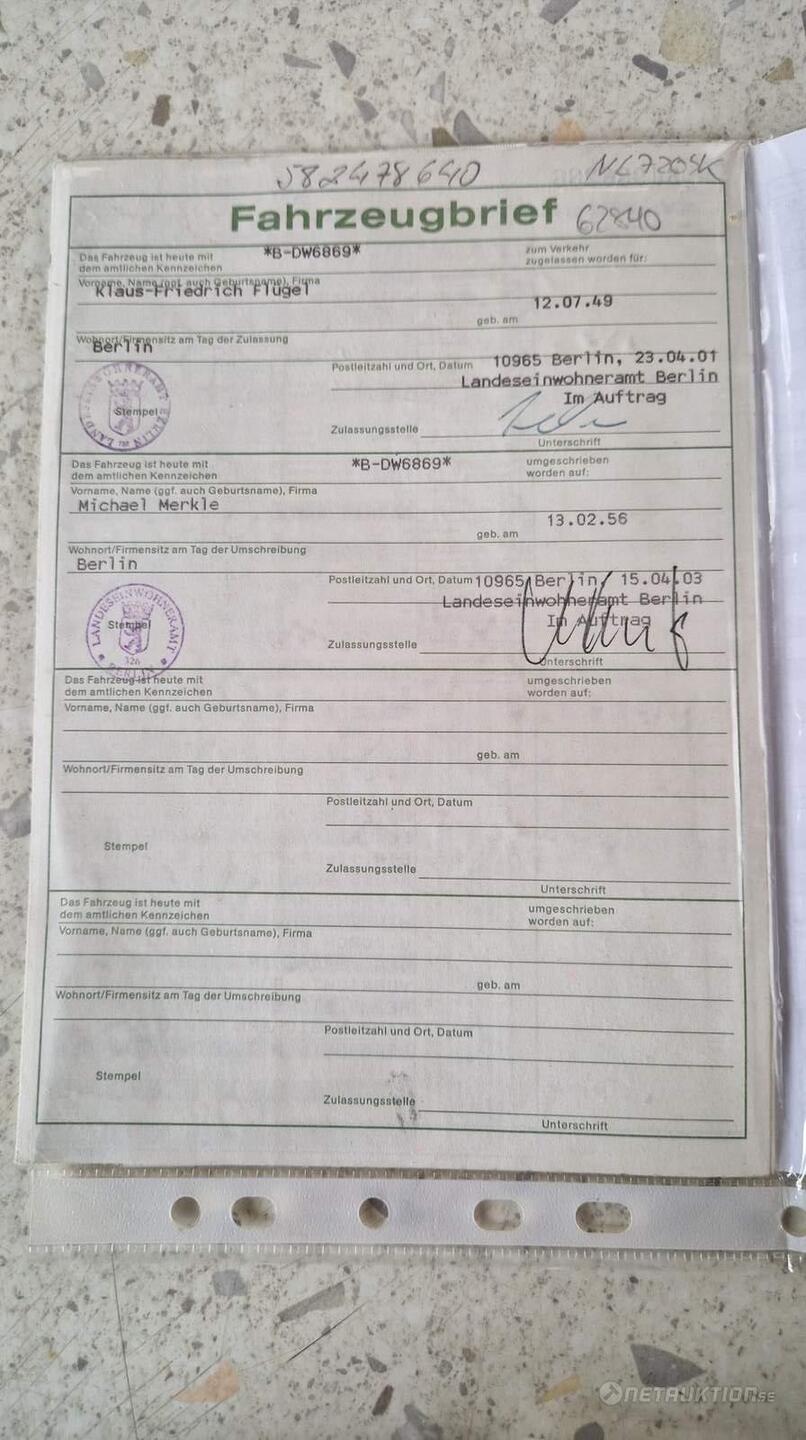 582478640
Fahrzeugbrief 62840
Das Fahrzeug ist heute mit *B-DW6869* zum Verkehr
dem amtlichen Kennzeichen zugelassen worden für:
Vorname, Name (ggf. auch Geburtsname), Firma
Klaus-Friedrich Flügel
12.07.49
geb. am
Wohnort/Firmensitz am Tag der Zulassung
Berlin
Postleitzahl und Ort, Datum 10965 Berlin, 23.04.01
Landeseinwohneramt Berlin
Im Auftrag
Stempel
Zulassungsstelle
Unterschrift
Das Fahrzeug ist heute mit *B-DW6869* umgeschrieben
dem amtlichen Kennzeichen worden auf:
Vorname, Name (ggf. auch Geburtsname), Firma
Michael Merkle
13.02.56
geb. am
Wohnort/Firmensitz am Tag der Umschreibung
Berlin
Postleitzahl und Ort, Datum 10965 Berlin, 15.04.03
Landeseinwohneramt Berlin
LANDESEINWOHNERAMT
Stempel
326
BERLIN
Im Auftrag
Zulassungsstelle
Unterschrift
Das Fahrzeug ist heute mit umgeschrieben
dem amtlichen Kennzeichen worden auf:
Vorname, Name (ggf. auch Geburtsname), Firma
geb. am
Wohnort/Firmensitz am Tag der Umschreibung
Postleitzahl und Ort, Datum
Stempel
Zulassungsstelle
Unterschrift
Das Fahrzeug ist heute mit umgeschrieben
dem amtlichen Kennzeichen worden auf:
Vorname, Name (ggf. auch Geburtsname), Firma
geb. am
Wohnort/Firmensitz am Tag der Umschreibung
Postleitzahl und Ort, Datum
Stempel
Zulassungsstelle
Unterschrift
NETAUKTION.SE